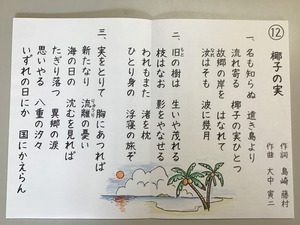 ⑫
椰子の実
作詞 島崎 藤村
作曲 大中 寅二
一、名も知らぬ 遠き島より
流れ寄る 椰子の実ひとつ
故郷の岸を はなれて
汝はそも 波に幾月
二、旧の樹は 生いや茂れる
枝はなお 影をやなせる
われもまた 渚を枕
ひとり身の 浮寝の旅ぞ
三、実をとりて 胸にあつれば
新たなり 流離の憂い
海の日の 沈むを見れば
たぎり落つ 異郷の涙
思いやる 八重の汐々
いずれの日にか 国にかえらん